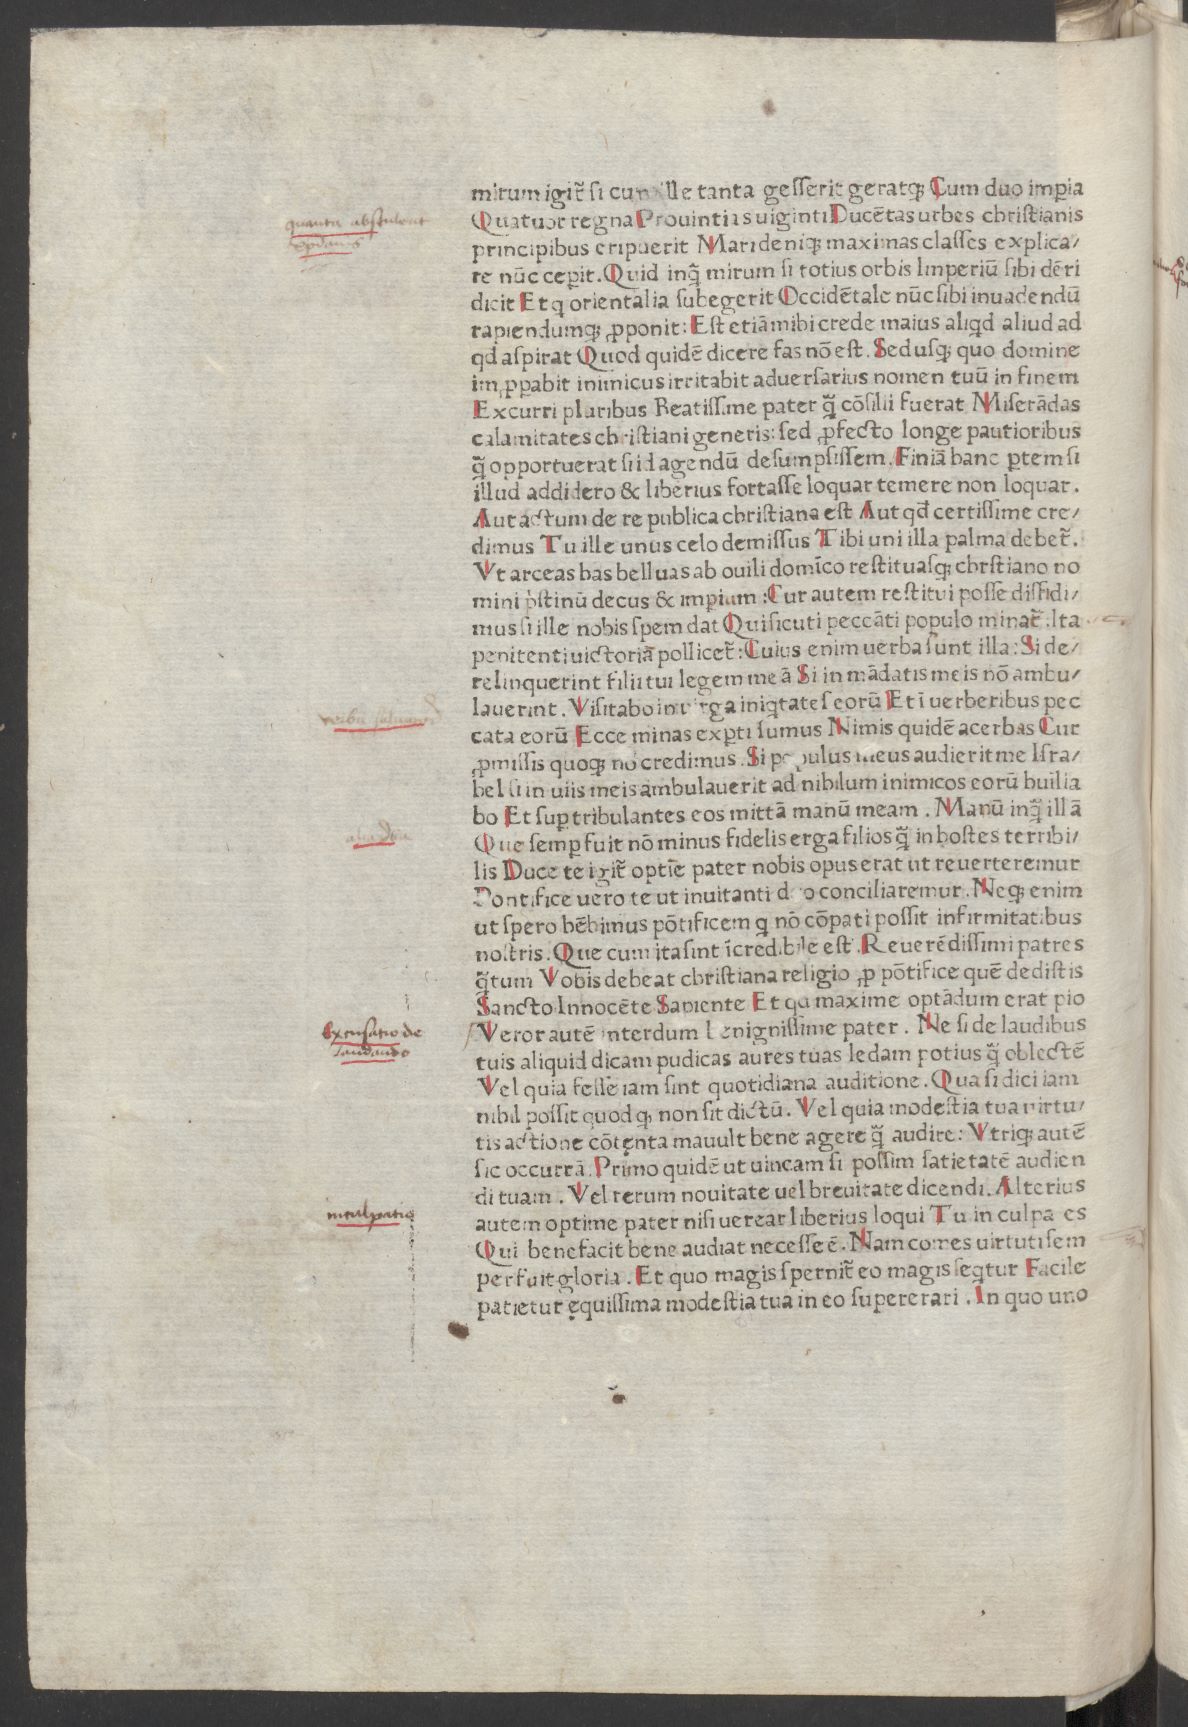 mirum igit̃ si cum ille tanta gesserit geratq; Cum duo imperia
quantum abstulerit
Quatuor regna Prouintias uiginti Ducētas urbes christianis
principibus eripuerit Mari deniq; maximas classes explica/
re nūc cepit. Quid inq̃ mirum si totius orbis Imperiū sibi dēri
dicit Et q orientalia subegerit Occidētale nūc sibi inuadendū
rapiendumq; ꝓponit: Est etiā mihi crede maius aliqd aliud ad
qd aspirat Quod quidē dicere fas nō est. Sed usq; quo domine
imꝓꝑabit inimicus irritabit aduersarius nomen tuū in finem
Excurri pluribus Beatissime pater q̃ cōsilii fuerat Miserādas
calamitates christiani generis: sed ꝓfecto longe pautioribus
q̃ opportuerat si id agendū desumpsissem. Finiā hanc ꝑtem si
illud addidero & liberius fortasse loquar temere non loquar.
Aut actum de re publica christiana est Aut qd certissime cre/
dimus Tu ille unus celo demissus Tibi uni illa palma debet̃.
Vt arceas has belluas ab ouili domīco restituasq; chrstiano no
mini p̃stinū decus & imꝑium: Cur autem restitui posse diffidi/
mus si ille nobis spem dat Qui sicuti peccāti populo minat̃: Ita
penitenti uictoriā pollicet̃: Cuius enim uerba sunt illa: Si de/
relinquerint filii tui legem meā Si in mādatis meis nō ambu/
lauerint. Visitabo in uirga iniqtates eorū Et ī uerberibus pec
cata eorū Ecce minas exꝑti sumus Nimis quidē acerbas Cur
ꝓmissis quoq; nō credimus. Si populus meus audierit me Isra/
hel si in uiis meis ambulauerit ad nihilum inimicos eorū huilia
bo Et suꝑ tribulantes eos mittā manū meam. Manū inq̃ illā
Que semꝑ fuit nō minus fidelis erga filios q̃ in hostes terribi/
lis Duce te igit̃ optīe pater nobis opus erat ut reuerteremur
Pontifice uero te ut inuitanti deo conciliaremur. Neq; enim
ut spero hēbimus pōtificem q nō cōpati possit infirmitatibus
nostris. Que cum ita sint īcredibile est. Reuerēdissimi patres
q̃tum Vobis debeat christiana religio ꝓ pōtifice quē dedistis
Sancto Innocēte Sapiente Et qd maxime optādum erat pio
Excusatio de
laudando
Veror autē interdum benignissime pater. Ne si de laudibus
tuis aliquid dicam pudicas aures tuas ledam potius q̃ oblectē
Vel quia fesse iam sint quotidiana auditione. Qua si dici iam
nihil possit quod q; non sit dictū. Vel quia modestia tua uirtu/
tis actione cōtenta mauult bene agere q̃ audire: Vtriq; autē
sic occurrā. Primo quidē ut uincam si possim satietatē audien
di tuam. Vel rerum nouitate uel breuitate dicendi. Alterius
inculpatio
autem optime pater nisi uerear liberius loqui Tu in culpa es
Qui bene facit bene audiat necesse ē. Nam comes uirtuti sem
per fuit gloria. Et quo magis spernit̃ eo magis seqtur Facile
patietur ęquissima modestia tua in eo superari. In quo uno